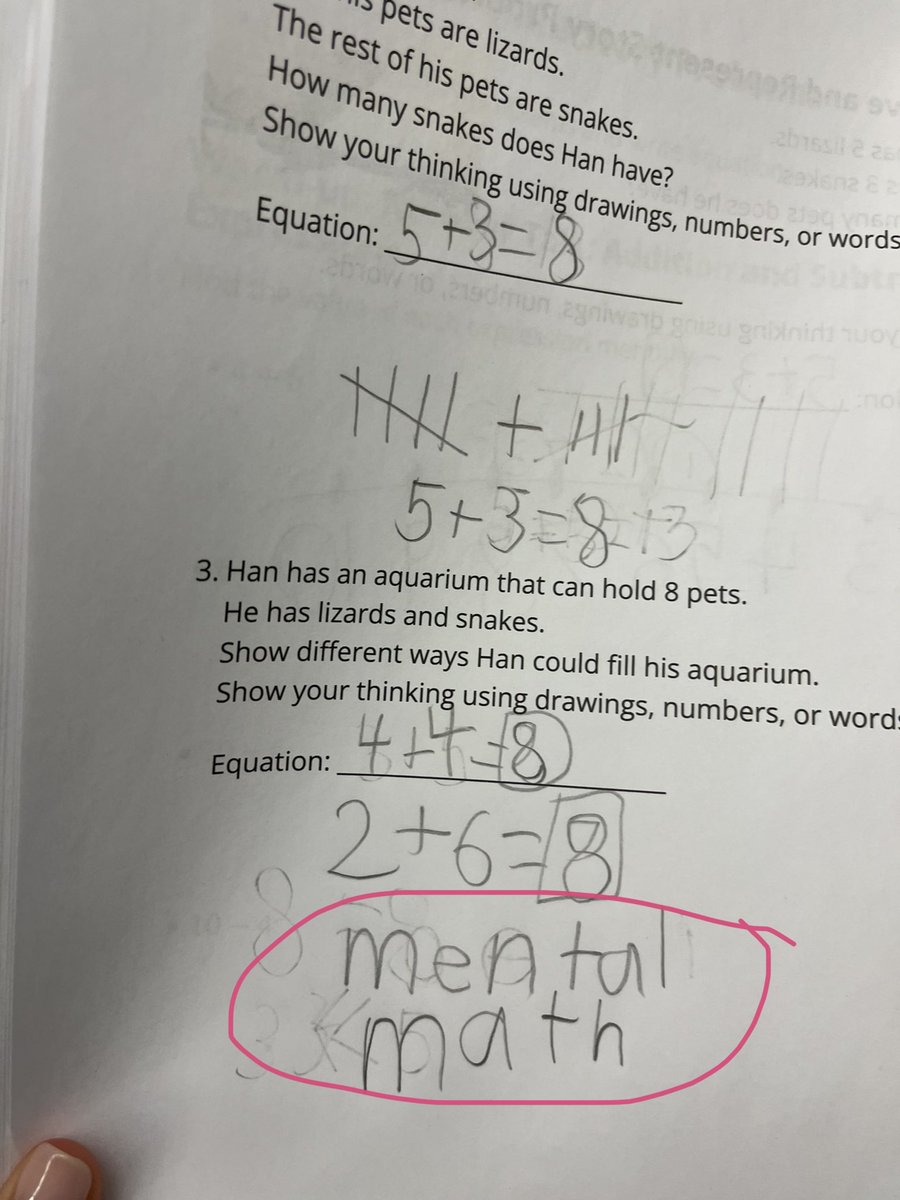 pets are lizards.
The rest of his pets are snakes.
How many snakes does Han have?
Show your thinking using drawings, numbers, or words
Equation: 5+3=8
+
5+3=8
3. Han has an aquarium that can hold 8 pets.
He has lizards and snakes.
Show different ways Han could fill his aquarium.
Show your thinking using drawings, numbers, or words
Equation: 4+4=8
2+6=8
mental
math